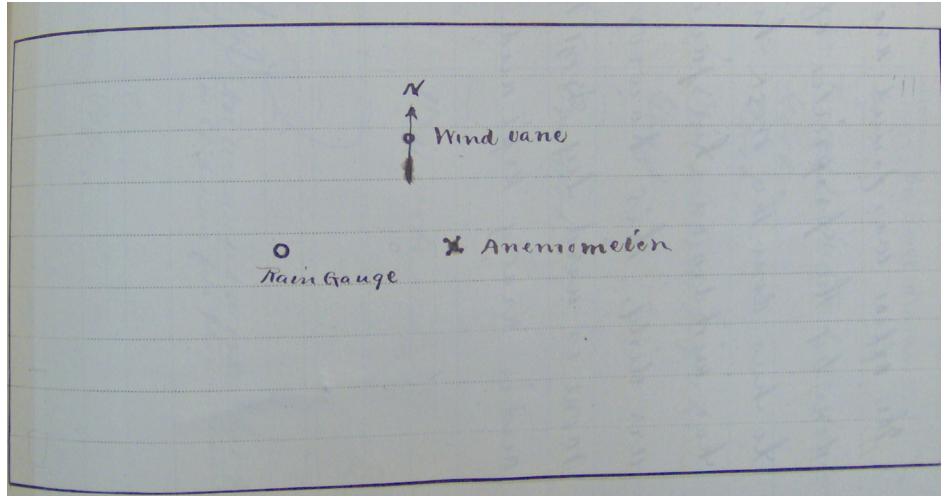 N
Wind vane
Anemometer
Rain Gauge